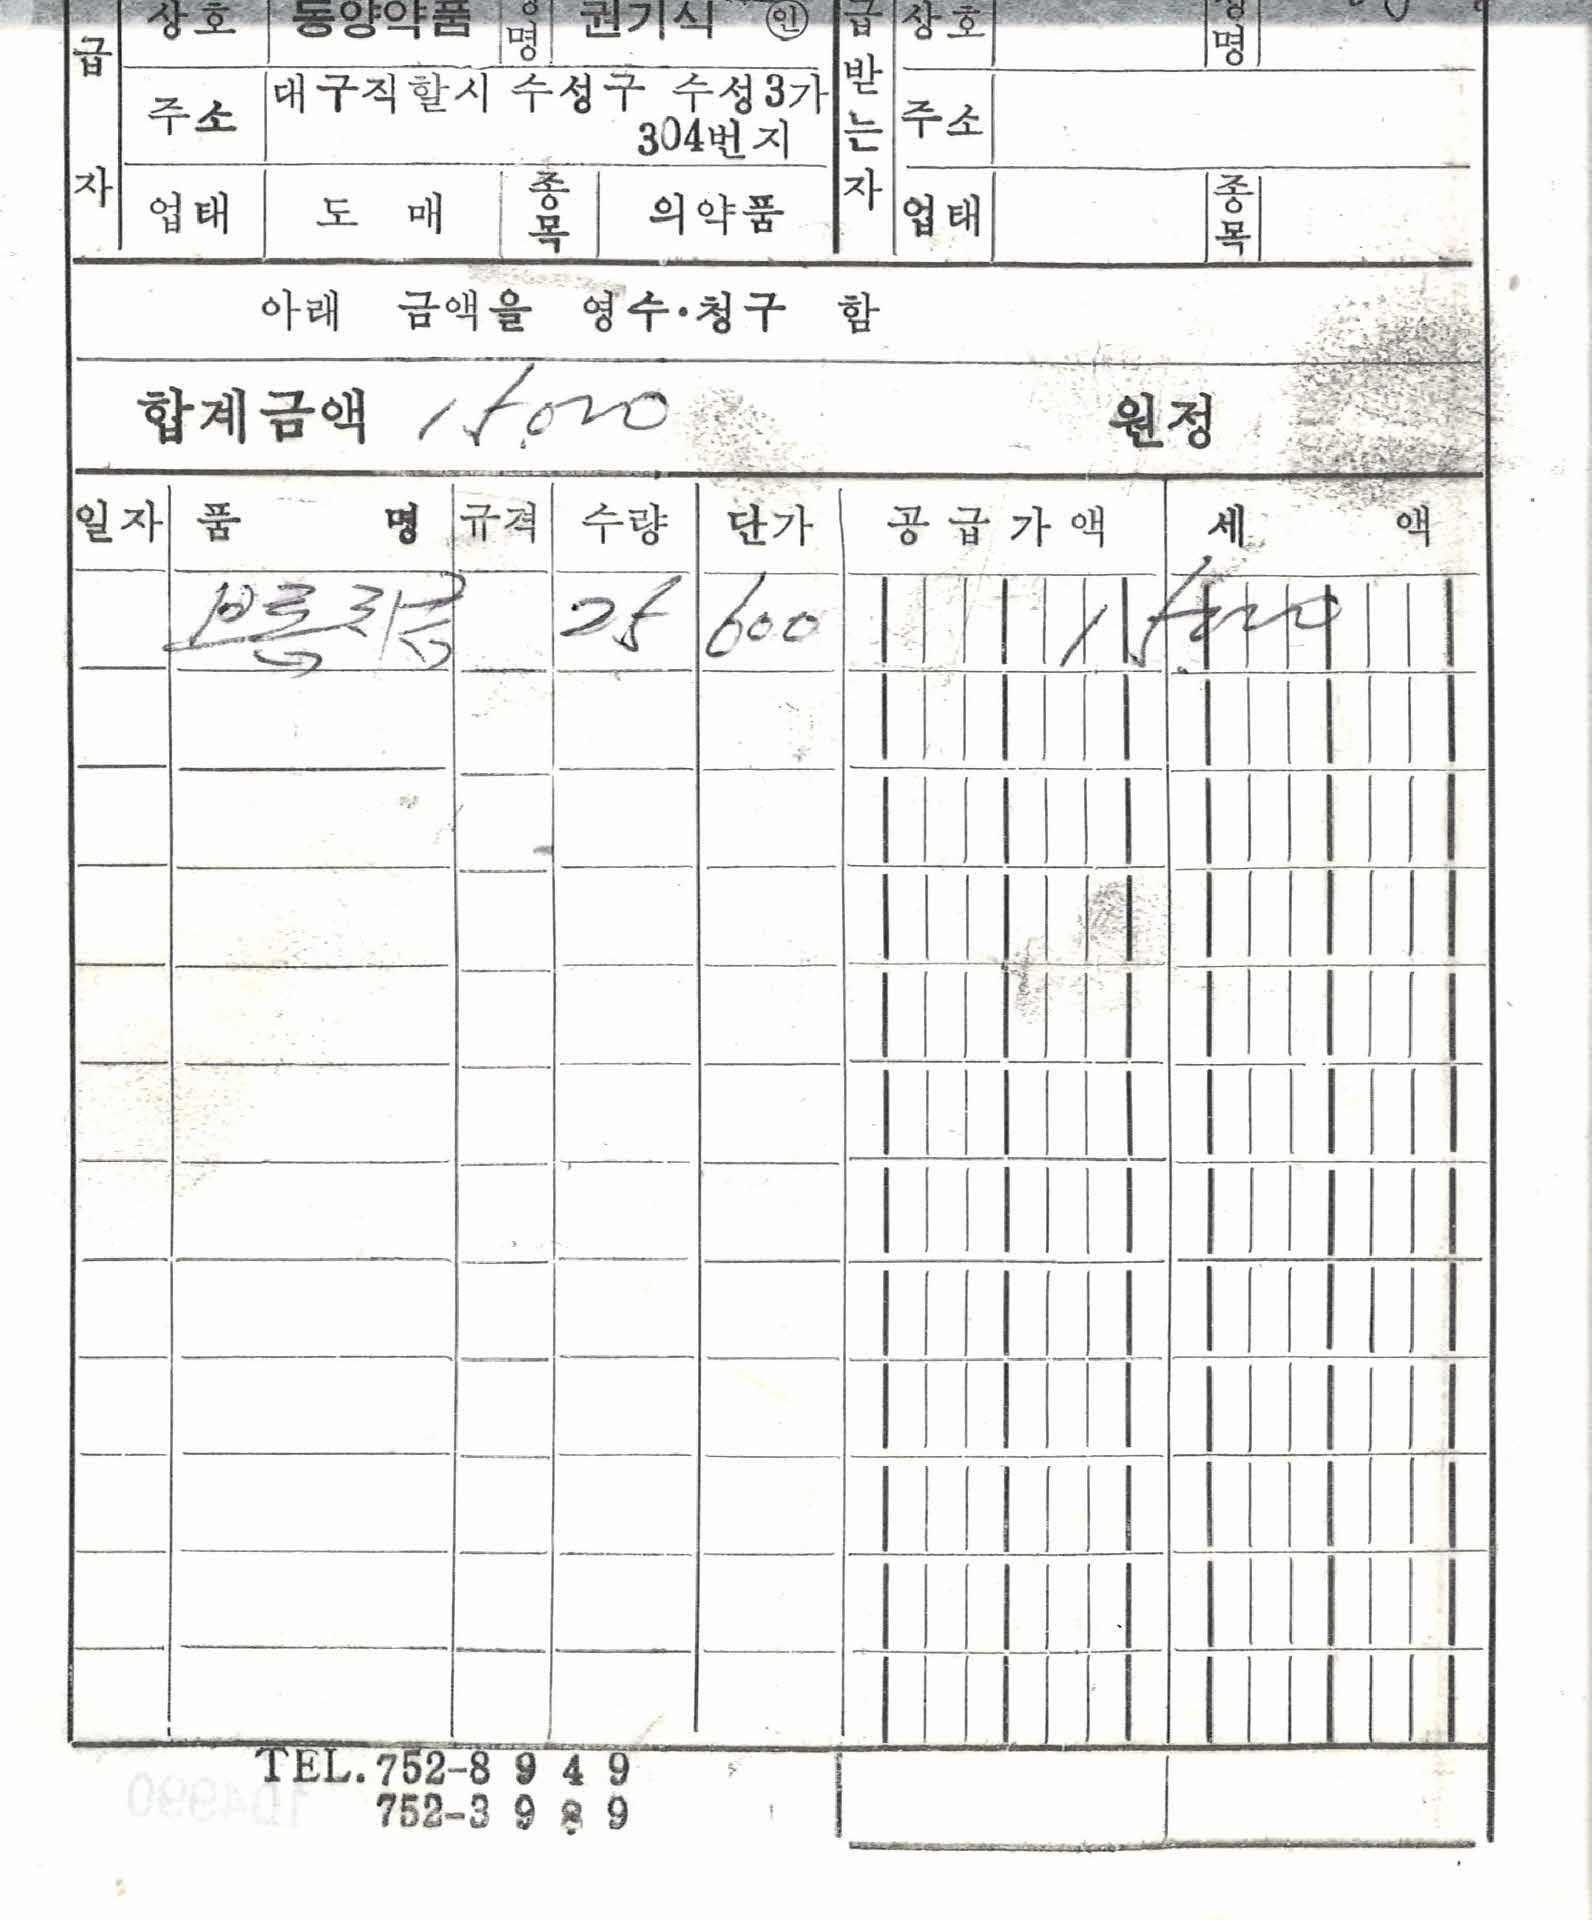 급 상호 동양약품 명 권기식 인 급 상호 명
받
주소 대구직할시 수성구 수성3가 는 주소
304번지
자 업태 도 매 종목 의약품 자 업태 종목
아래 금액을 영수·청구 함
합계금액 15,000 원정
일자 품 명 규격 수량 단가 공급가액 세 액
25 600 15,000
TEL.752-8 9 4 9
752-3 9 8 9